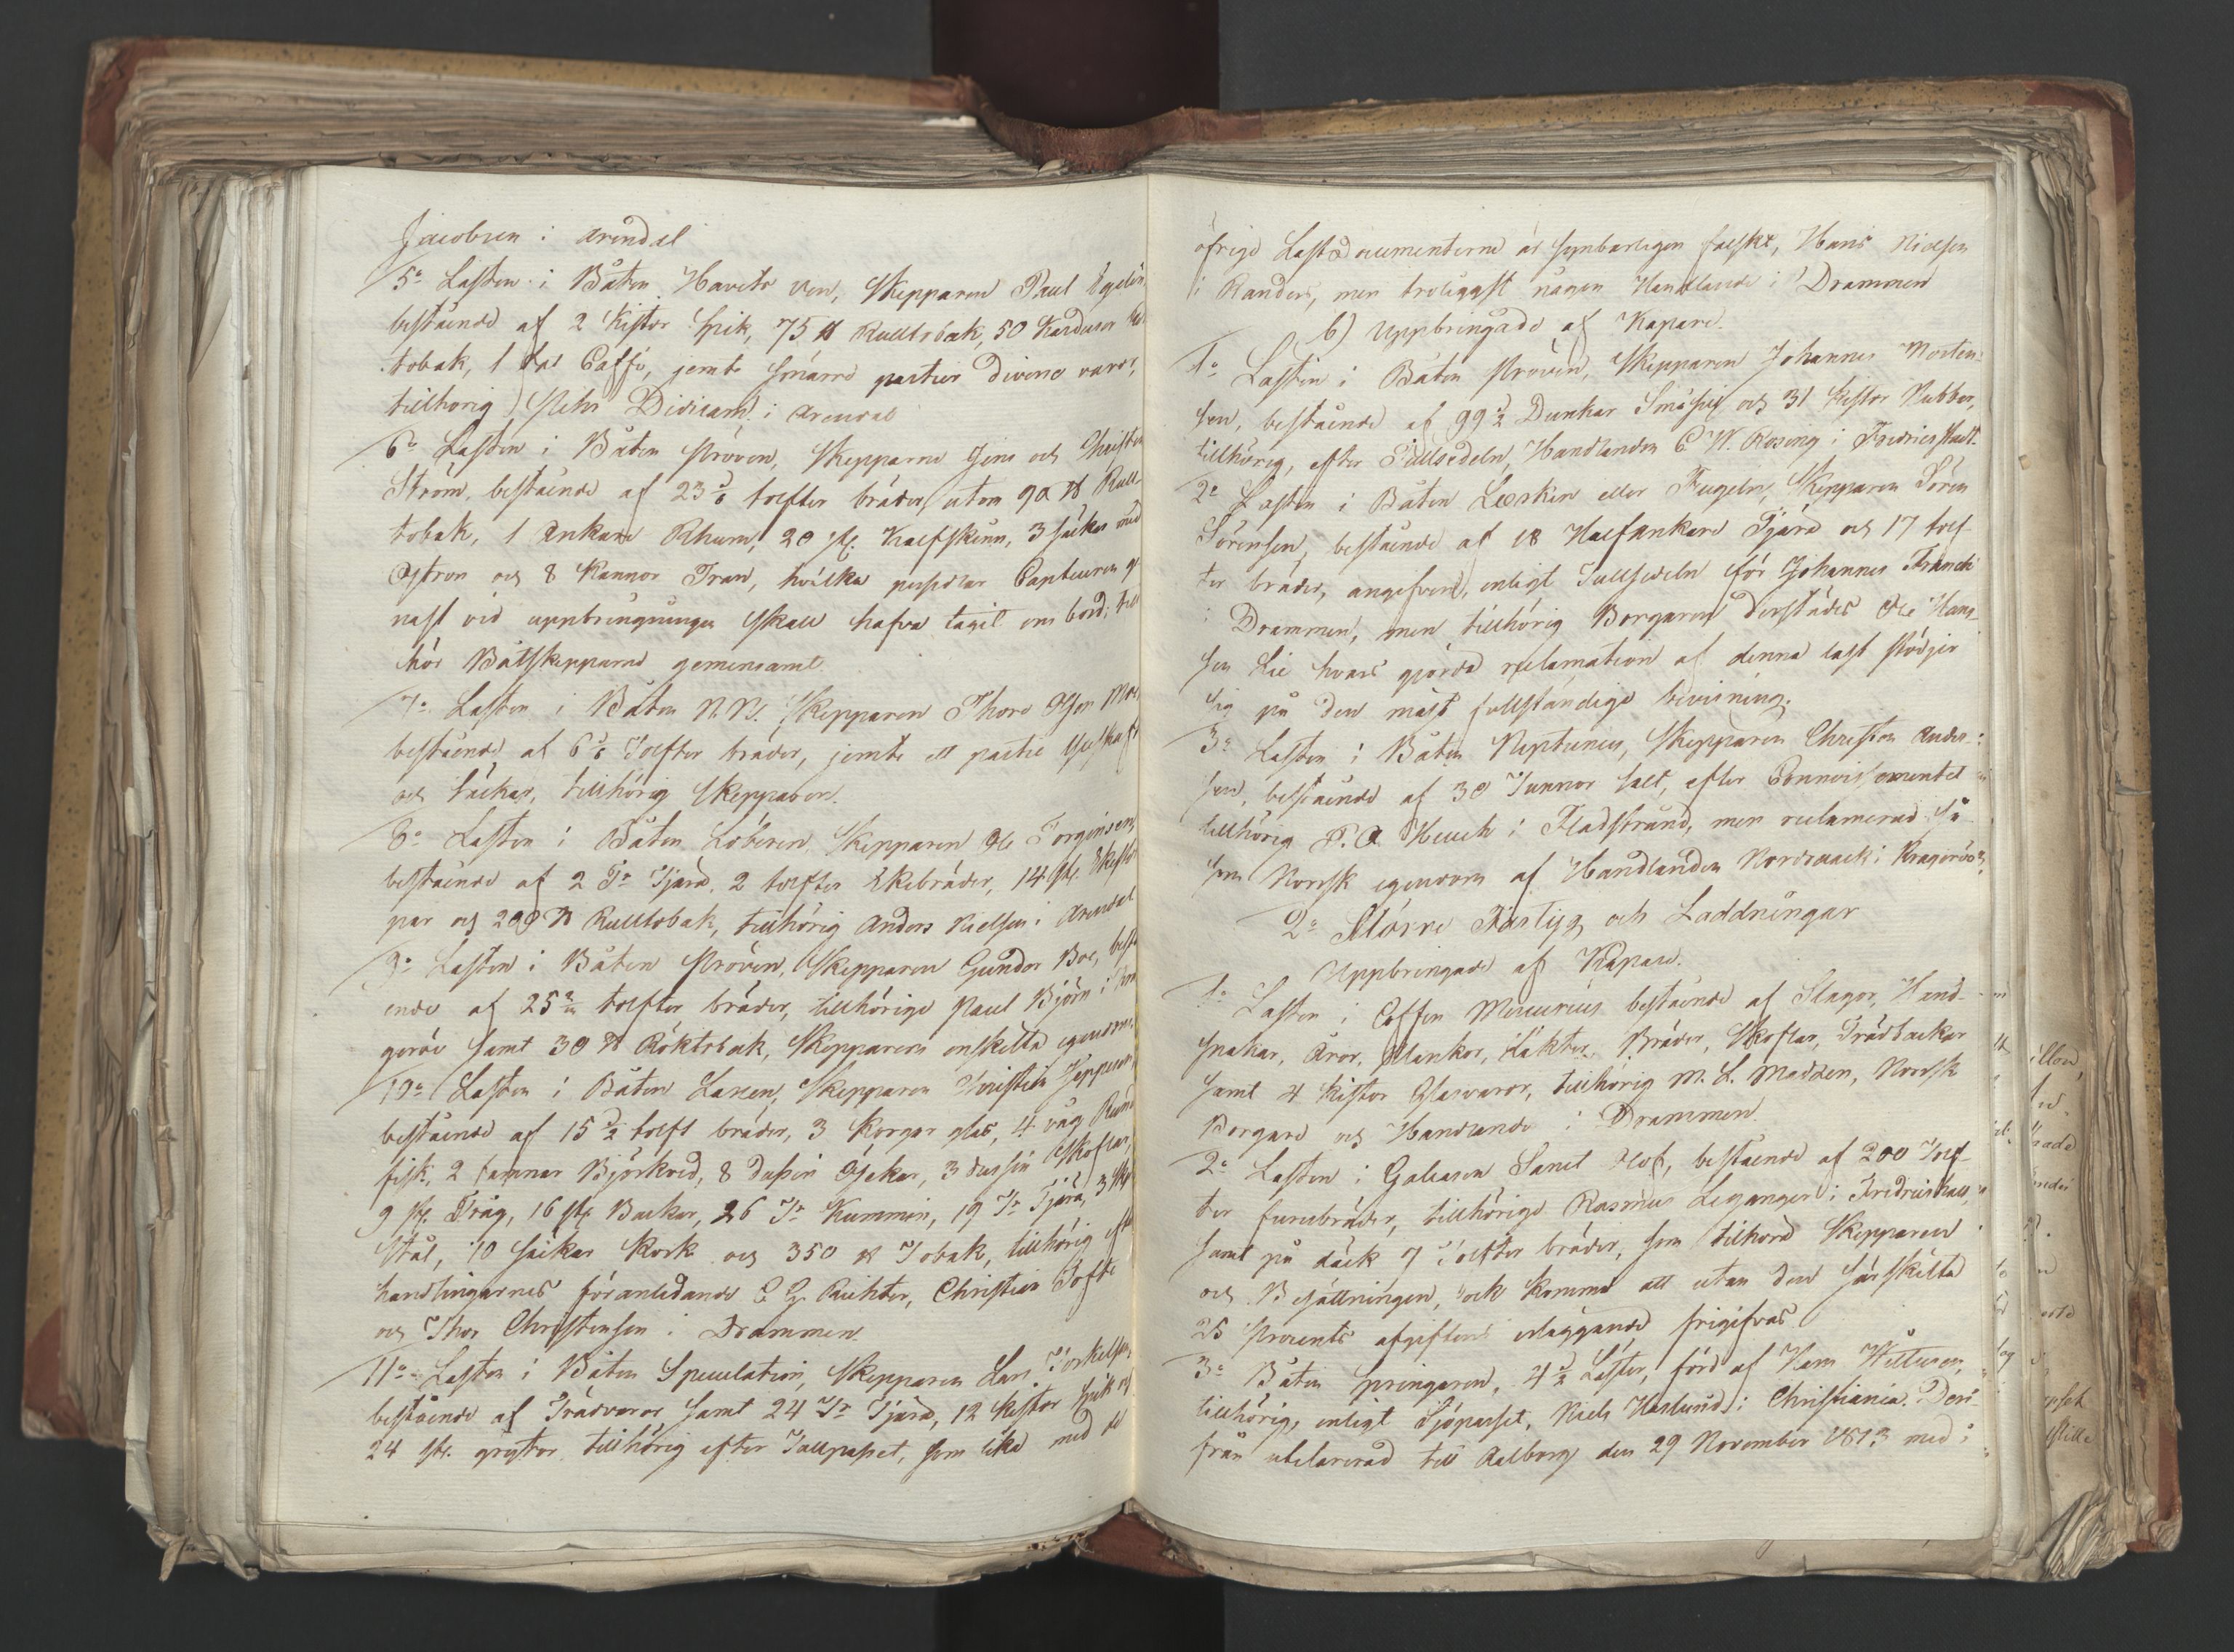 Jacobsen i Arendal
5:o Lasten i Båten Havets Ven, Skepparen Paul
bestående af 2 Kistor Spik, 75 ℔ Rulltobak, 50 Karduser
tobak, 1 Caffe, jemte smärre partier diverse varor,
tillhörig Didricsand i Arendal
6:o Lasten i Båten Pröven, Skepparne Jens och Christen
Ström, bestående af 23 tolfter bräder, utom 90 ℔ Rull
tobak, 1 Ankare Rhum, 20 st. Kalfskinn, 3 säckar med
Ostron och 8 Kannor Tran, hvilka Capteuren
vid uppbringningen skall hafva tagit om bord; till
hör Båtskepparne gemensamt.
7:o Lasten i Båten N.N. Skepparen Thore Olsen
bestående af 6 Tolfter bräder, jemte ett partie
och Säckar, tillhörig Skepparen.
8:o Lasten i Båten Löberen Skepparen Ole Torginsen,
bestående af 2 T:r Tjära, 2 tolfter Ekebräder, 14 st.
par och 200 ℔ Rulltobak, tillhörig Anders Nielsen i Arendal
9:o Lasten i Båten Pröven, Skepparen Gundor Boe, bestå
ende af 25 tolfter bräder, tillhörige Paul Björn i
geröe samt 30 ℔ Röktobak, Skepparens enskilta egendom.
10:o Lasten i Båten Laxen, Skepparen Christian Jeppesen,
bestående af 15 1/2 tolft bräder, 3 Korgar glas, 4 våg Rund
fisk, 2 famnar Björkved, 8 dussin Öskar, 3 dussin Skoflar,
9 st. Tråg, 16 st. Backar, 26 T:r Kummin, 19 T:r Tjära, 3
Stål, 10 säckar Kork och 350 ℔ Tobak, tillhörig efter
handlingarnes föranledande C. G. Richter, Christian Tofte
och Thor Christensen i Drammen.
11:o Lasten i Båten Speculation, Skepparen Lars Torkelsen,
bestående af Trädvaror samt 24 T:r Tjära, 12 Kistor Spik och
24 st. grytor tillhörig efter Tullpasset, som lika med de
öfrige Lastdocumenterne är synbarligen falskt, Hans Nielsen
i Randers, men troligast någon Handlande i Drammen
b) Uppbringade af Kapare.
1:o Lasten i Båten Pröven, Skepparen Johannes Morten-
sen, bestående af 99 1/2 Dunkar Småspik och 31 Kistor Nubber,
tillhörig, efter Tullsedeln, Handlanden C. W. Rosing i Fredricsstadt.
2:o Lasten i Båten Lærken eller Fugeln, Skepparen Sören
Sörensen, bestående af 18 Halfankare Tjära och 17 tolf-
ter bräder, angifven, enligt Tullsedeln för Johannes Franck
i Drammen, men tillhörig Borgaren derstädes Ole Han-
sen Lie hvars gjorda reclamation af denna last stödjer
sig på den mäst fullständiga bevisning.
3:o Lasten i Båten Neptunus, Skepparen Christen Ander-
sen, bestående af 30 Tunnor salt, efter Connoissementet
tillhörig P. A. Heuch i Fladstrand, men reclamerad så
som Norrsk egendom af Handlanden Nordraack i Krageröe.
2:o Större Fartyg och Laddningar
Uppbringade af Kapare.
1:o Lasten i Coffen Mercurius bestående af Slagor, Hand-
spakar, Åror, Plankor, Läkter, Bräder, Skoflar, Trädbackar
samt 4 Kistor Glasvaror, tillhörig M. L. Madsen, Norrsk
Borgare och Handlande i Drammen.
2:o Lasten i Galeasen Sanct Olof, bestående af 200 Tolf-
ter furubräder, tillhörige Rasmus Leganger i Fredricshald,
samt på däck 7 Tolfter bräder, som tilhöra Skepparen
och Besättningen, och komma att utan den särskilta
25 procents afgiftens erläggande frigifvas.
3:o Båten Springaren, 4 1/2 Läster, förd af Hans
tillhörig, enligt Sjöpasset, Niels Haslund i Christiania. Der-
från utclarerad till Aalborg den 29 November 1813 med